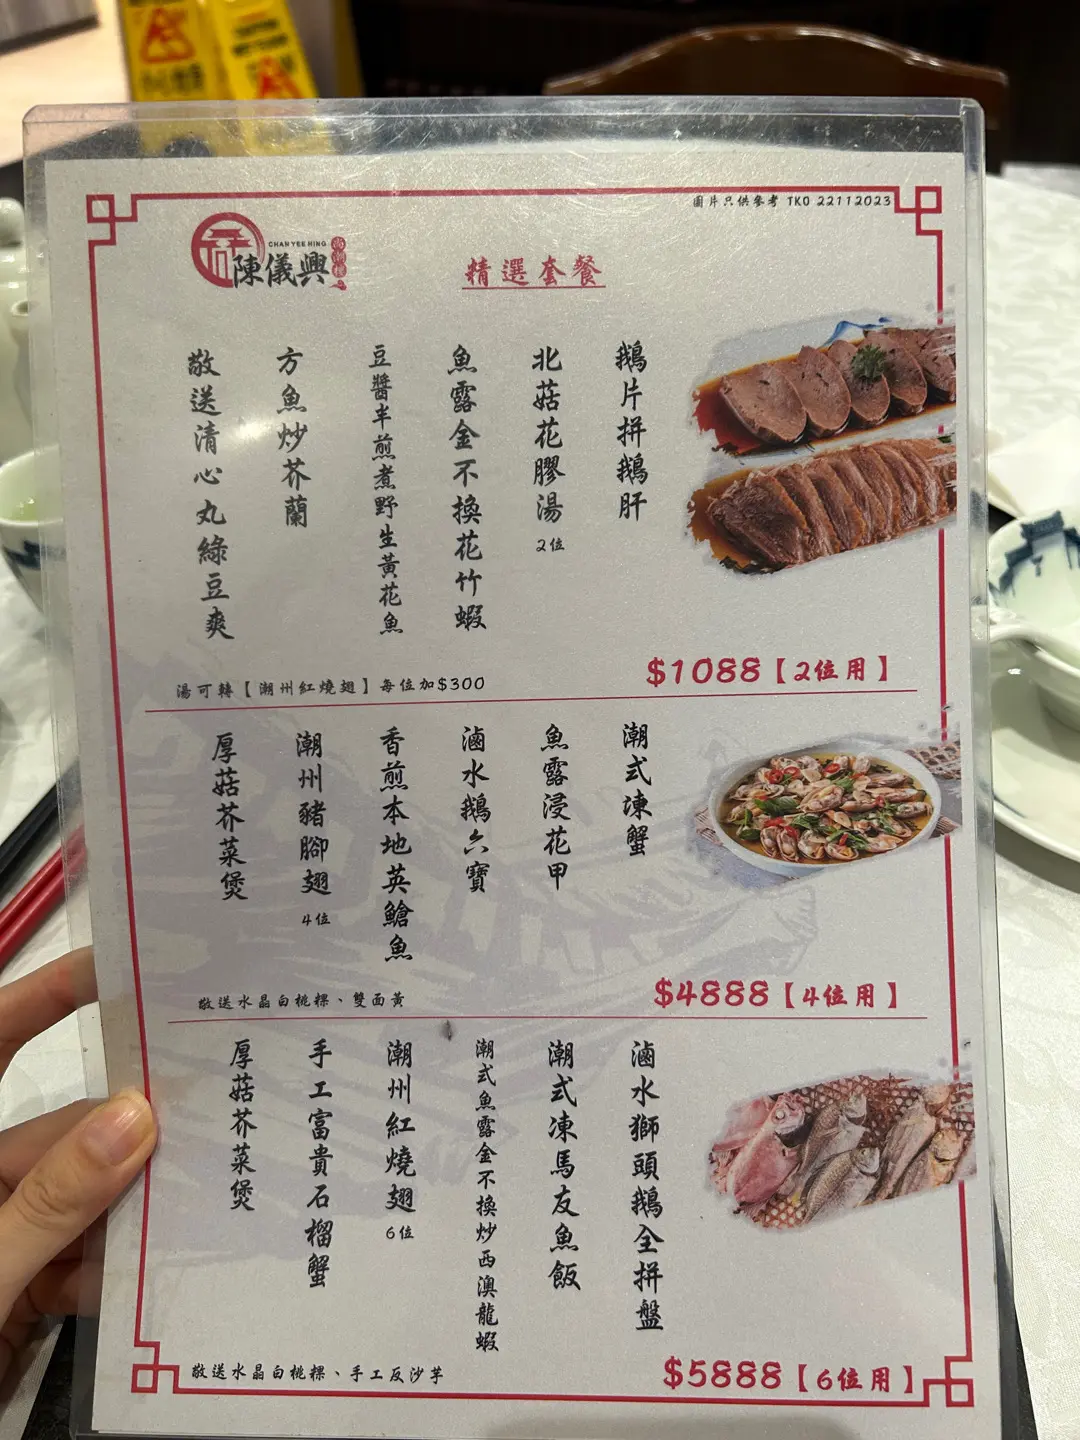 圖片只供參考 TKO 22112023
CHAN YEE HING
陳儀興
尚潮樓
精選套餐
鵝片拼鵝肝
北菇花膠湯 2位
魚露金不換花竹蝦
豆醬半煎煮野生黃花魚
方魚炒芥蘭
敬送清心丸綠豆爽
湯可轉【潮州紅燒翅】每位加$300
$1088【2位用】
潮式凍蟹
魚露浸花甲
滷水鵝六寶
香煎本地英鎗魚
潮州豬腳翅 4位
厚菇芥菜煲
敬送水晶白桃粿、雙面黃
$4888【4位用】
滷水獅頭鵝全拼盤
潮式凍馬友魚飯
潮式魚露金不換炒西澳龍蝦
潮州紅燒翅 6位
手工富貴石榴蟹
厚菇芥菜煲
敬送水晶白桃粿、手工反沙芋
$5888【6位用】